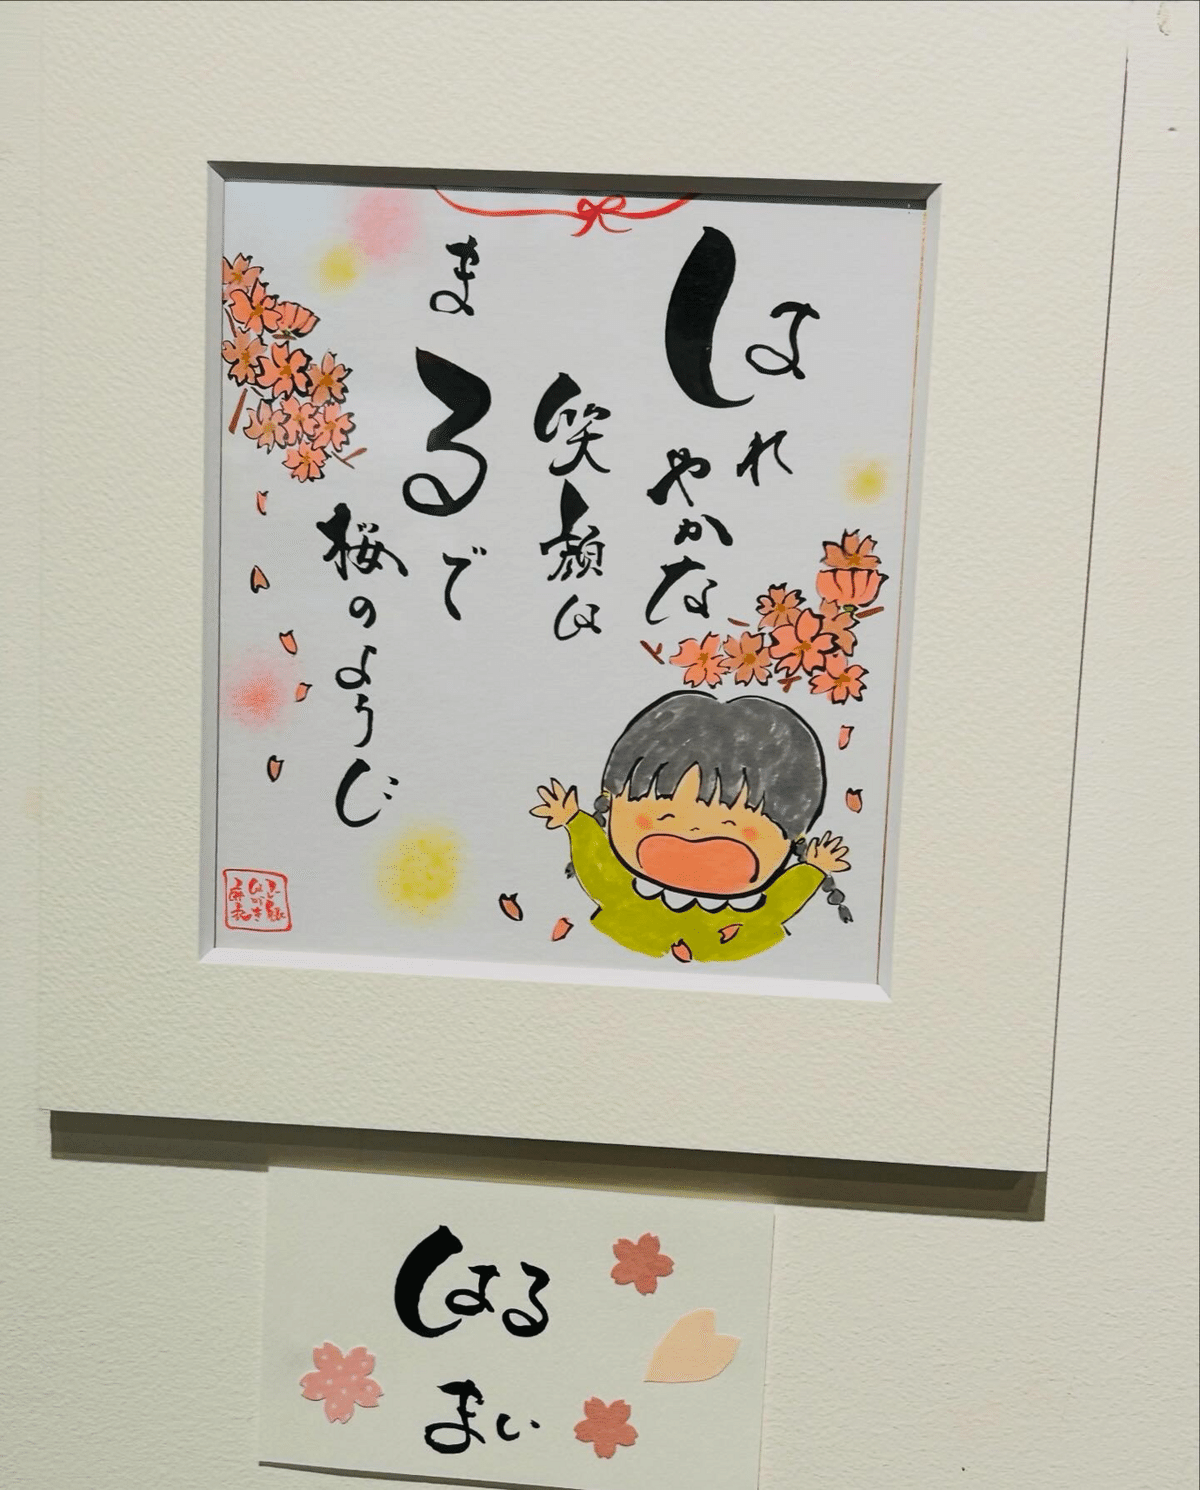 はれやかな
笑顔は
まるで
桜のようじ
はる
まい